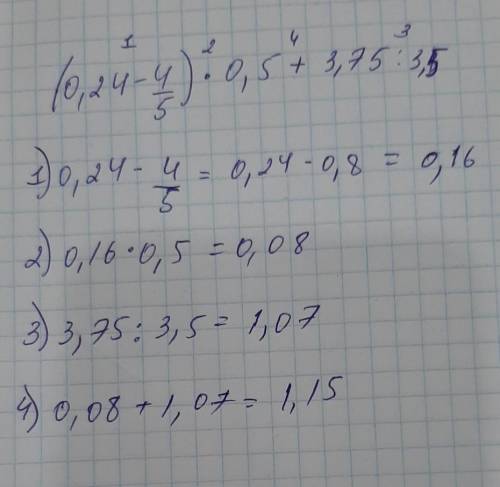 1 2 4 3
(0,24 - 4/5) · 0,5 + 3,75 : 3,5
1) 0,24 - 4/5 = 0,24 - 0,8 = 0,16
2) 0,16 · 0,5 = 0,08
3) 3,75 : 3,5 = 1,07
4) 0,08 + 1,07 = 1,15